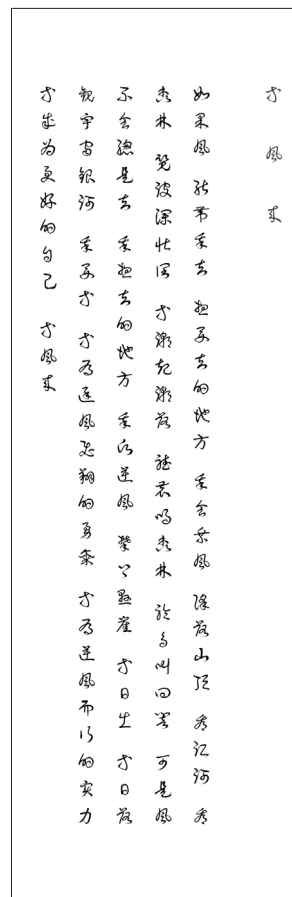 等风来
如果风 能带我去 想要去的地方 我会乘风 降落山顶 看江河 看
森林 览波澜壮阔 等潮起潮落 听鹿鸣森林 鸟叫回 可是风
不会总是去 我想去的地方 我 逆风 攀上悬崖 等日出 等日落
观宇宙银河 我要等 等有迎风飞翔的勇气 等有逆风而行的实力
等成为更好的自己 等风来